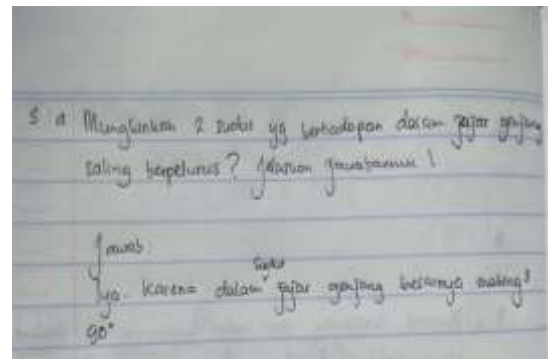 5 a Mungkinkah 2 sudut yg berhadapan dalam jajar genjang
saling berpelurus? Jelaskan jawabanmu!
Jawab:
sudut
Iya. karena dalam jajar genjang besarnya masing²
90°